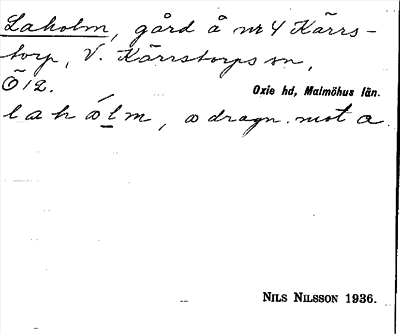 Laholm, gård å nr 4 Kärrs-
torp, V. Kärrstorps sn,
Ö 12.
Oxie hd, Malmöhus län.
lahålm, a dragn. mot a.
NILS NILSSON 1936.